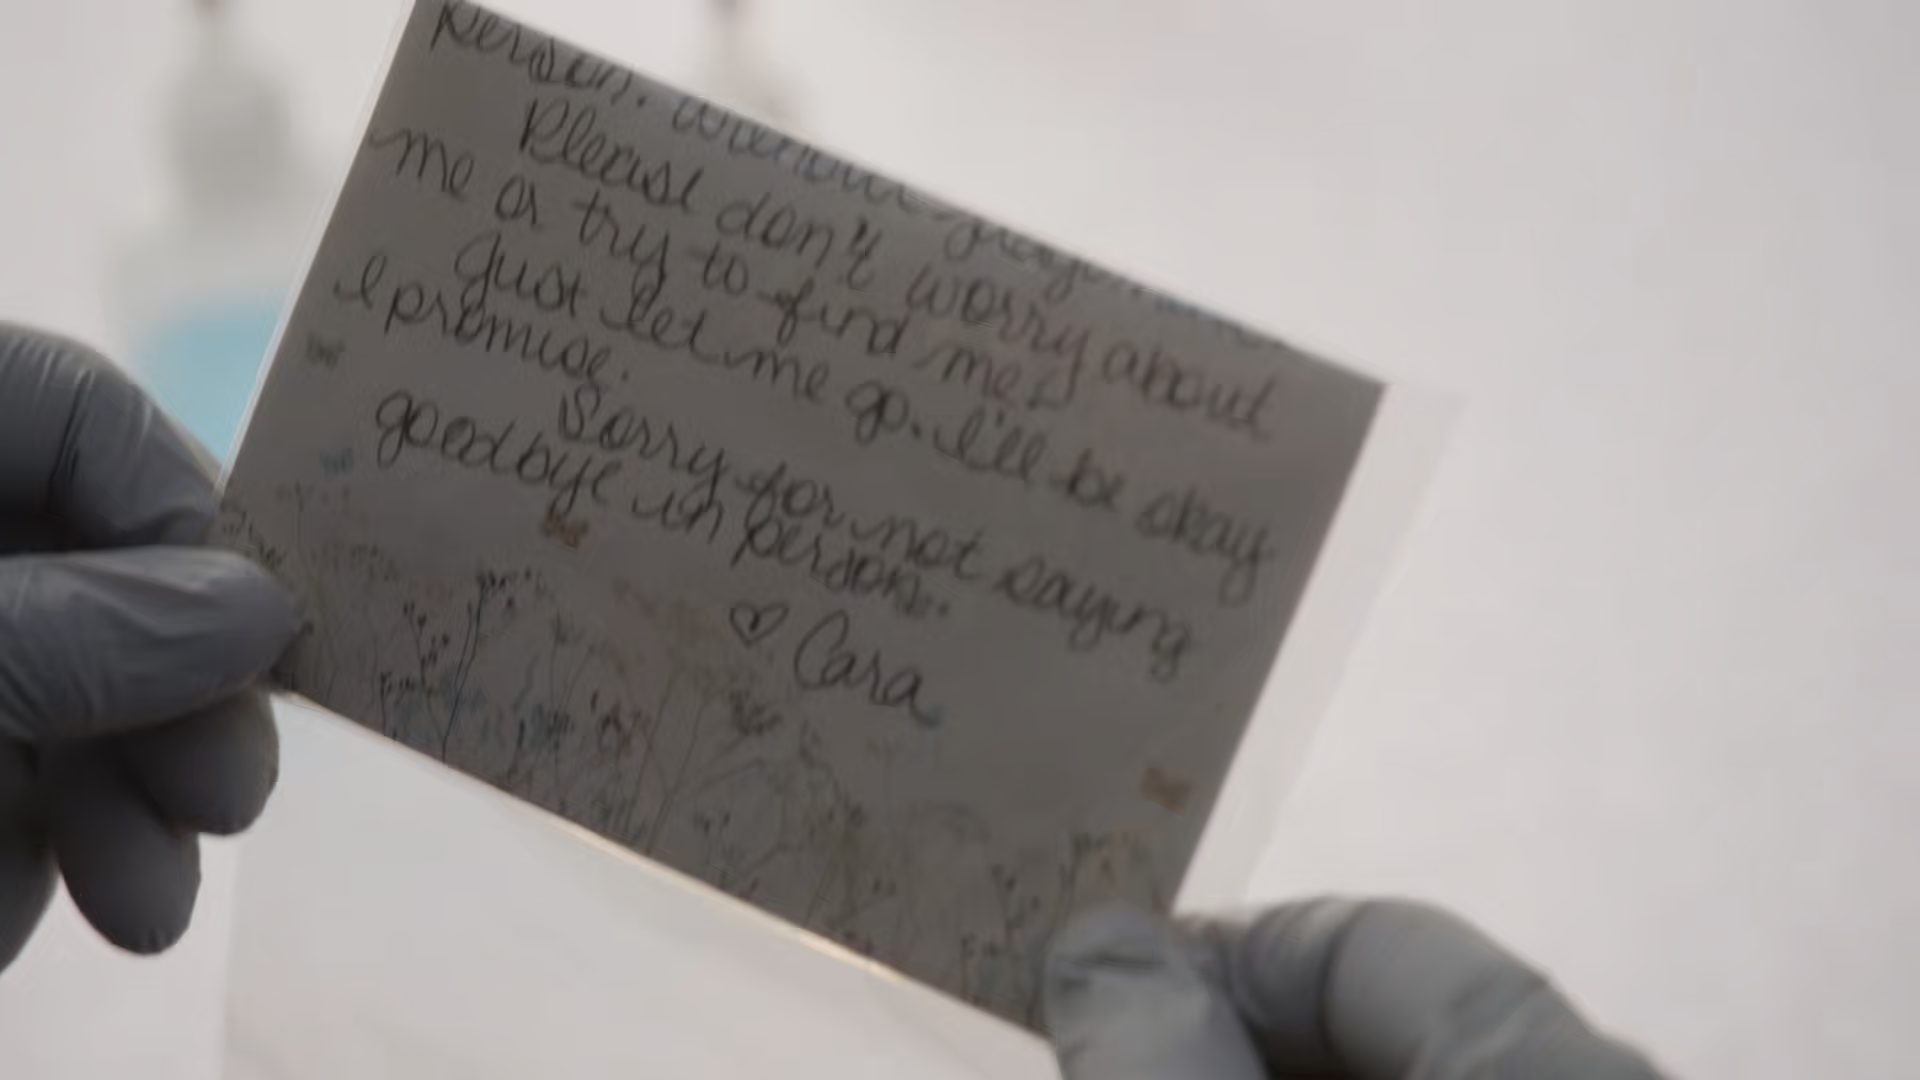 person.
Please don't worry about
me or try to find me.
Just let me go. I'll be okay
I promise.
Sorry for not saying
goodbye in person.
♡ Cara